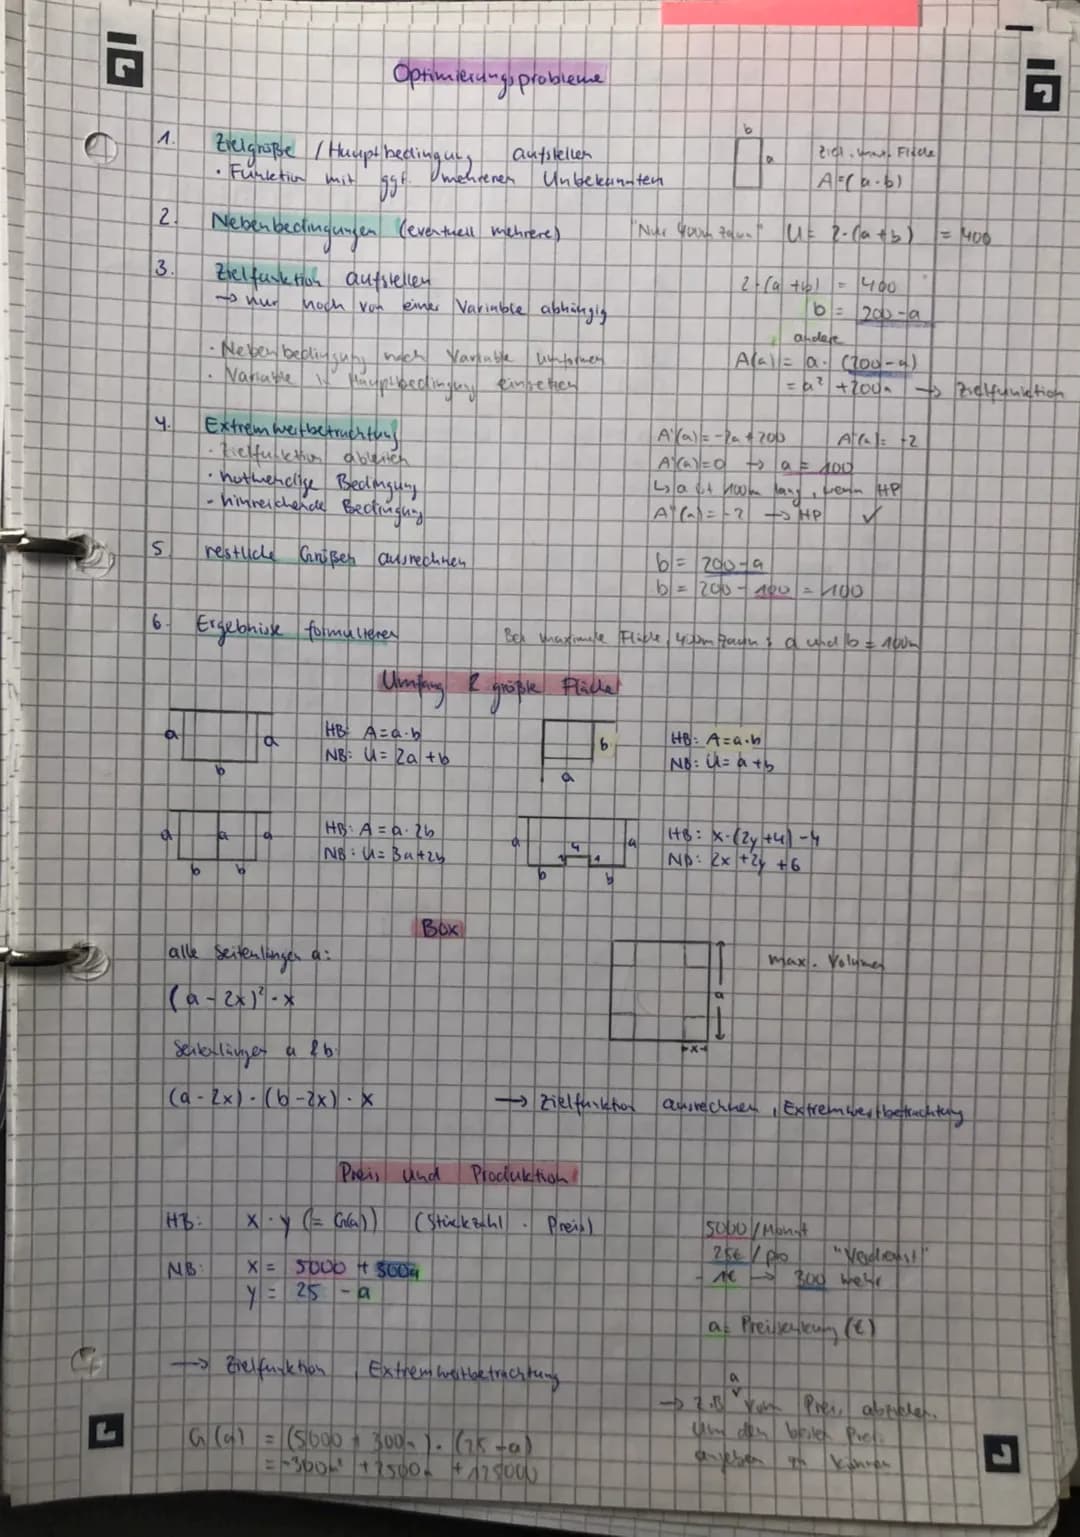 Optimierungsprobleme
1. Zielgröße / Hauptbedingung aufstellen
• Funktion mit ggf. mehreren Unbekannten
b
a
Ziel: max. Fläche
A=(a·b)
2. Nebenbedingungen (eventuell mehrere)
"Nur 400m Zaun" U= 2·(a+b) = 400
3. Zielfunktion aufstellen
→ nur noch von einer Variable abhängig
2·(a+b) = 400
b = 200-a
• Nebenbedingung nach Variable umformen
andere
• Variable in Hauptbedingung einsetzen
A(a) = a·(200-a)
= a² +200a → Zielfunktion
4. Extremwertbetrachtung
• Zielfunktion ableiten
• notwendige Bedingung
- hinreichende Bedingung
A'(a) = -2a+200 A''(a)= -2
A'(a)=0 → a = 100
↳ a ist 100m lang, wenn HP
A''(a) = -2 → HP ✓
5. restliche Größen ausrechnen
b = 200-a
b = 200 - 100 = 100
6. Ergebnisse formulieren
Bei maximale Fläche, 400m Zaun: a und b = 100m
Umfang & größte Fläche
a
a
b
HB: A=a·b
NB: U= 2a+b
b
a
HB: A=a·b
NB: U= a+b
a
a
a
b
b
HB: A = a·2b
NB: U= 3a+2b
a
4
1
a
b
b
HB: x·(2y+4)-4
NB: 2x+2y+6
Box
alle Seitenlängen a:
(a-2x)²·x
a
x
max. Volumen
Seitenlängen a & b:
(a-2x)·(b-2x)·x → Zielfunktion ausrechnen, Extremwertbetrachtung
Preis und Produktion
HB: x·y (= G(a)) (Stückzahl · Preis)
NB: x = 5000 + 300a
y = 25 - a
5000/Monat
25€/pro "Verdienst"
- 1€ → 300 mehr
a= Preissenkung (€)
→ Zielfunktion, Extremwertbetrachtung
G(a) = (5000 + 300a)·(25-a)
= -300a² + 2500a + 125000
a
→ z.B. vom Preis abziehen.
Um den besten Preis
angeben zu können